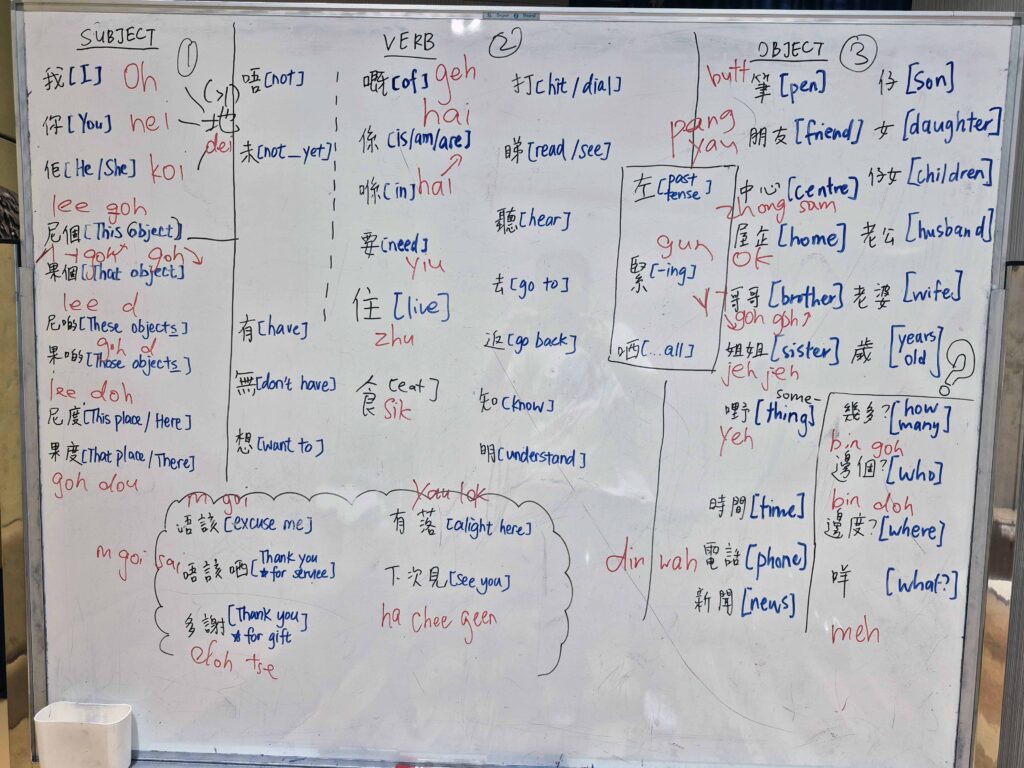 SUBJECT
①
我[I] Oh
你[You] nei
佢[He/She] koi
(>1)
地
dei
lee goh
尼個[This Object]
goh
果個[That object]
lee d
尼啲[These objects]
goh d
果啲[Those objects]
lee doh
尼度[This place/Here]
果度[That place/There]
goh dou
VERB ②
唔[not]
未[not_yet]
有[have]
無[don't have]
想[want to]
嘅[of] geh
hai
係[is/am/are]
喺[in] hai
要[need]
yiu
住[live]
zhu
食[eat]
Sik
打[hit/dial]
睇[read/see]
聽[hear]
去[go to]
返[go back]
知[know]
明[understand]
左[past tense]
gun
緊[-ing]
晒[...all]
OBJECT ③
butt 筆[pen]
pang
yau 朋友[friend]
中心[centre]
zhong sam
屋企[home]
OK
哥哥[brother]
goh goh
姐姐[sister]
jeh jeh
嘢[something]
yeh
時間[time]
din wah 電話[phone]
新聞[news]
仔[son]
女[daughter]
仔女[children]
老公[husband]
老婆[wife]
歲[years old]
?
幾多?[how many]
bin goh
邊個?[who]
bin doh
邊度?[where]
咩[what?]
meh
m goi
唔該[excuse me]
m goi sai 唔該晒[Thank you
*for service]
多謝[Thank you
*for gift]
doh tse
yau lok
有落[alight here]
下次見[see you]
ha chee geen